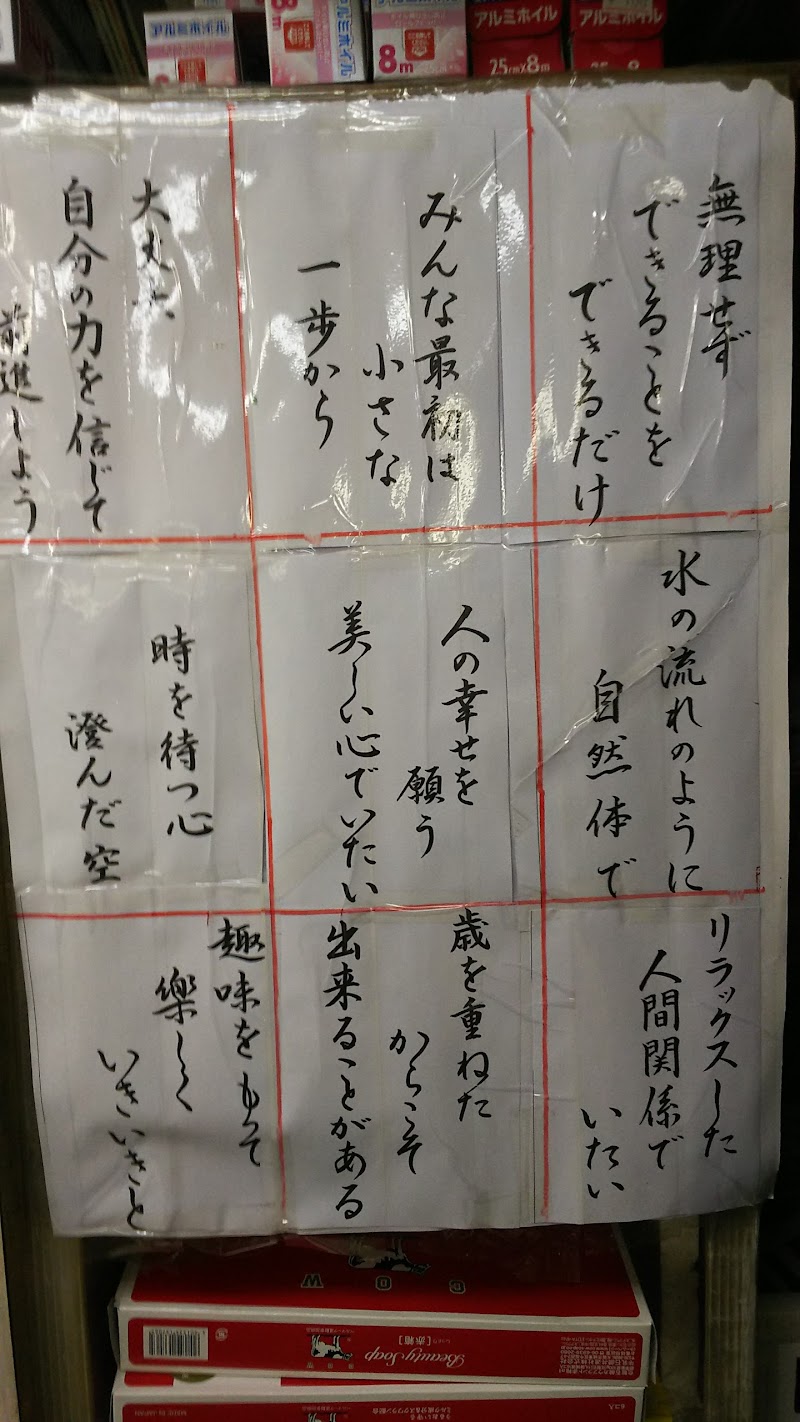 アルミホイル
8m
8m
アルミホイル
アルミホイル
8m
アルミホイル
25cm×8m
アルミホイル
無理せず
できることを
できるだけ
みんな最初は
小さな
一歩から
大丈夫
自分の力を信じて
前進しよう
水の流れのように
自然体で
人の幸せを
願う
美しい心でいたい
時を待つ心
澄んだ空
リラックスした
人間関係で
いたい
歳を重ねた
からこそ
出来ることがある
趣味をもって
楽しく
いきいきと
COW
Beauty Soap
しっとり[赤箱]